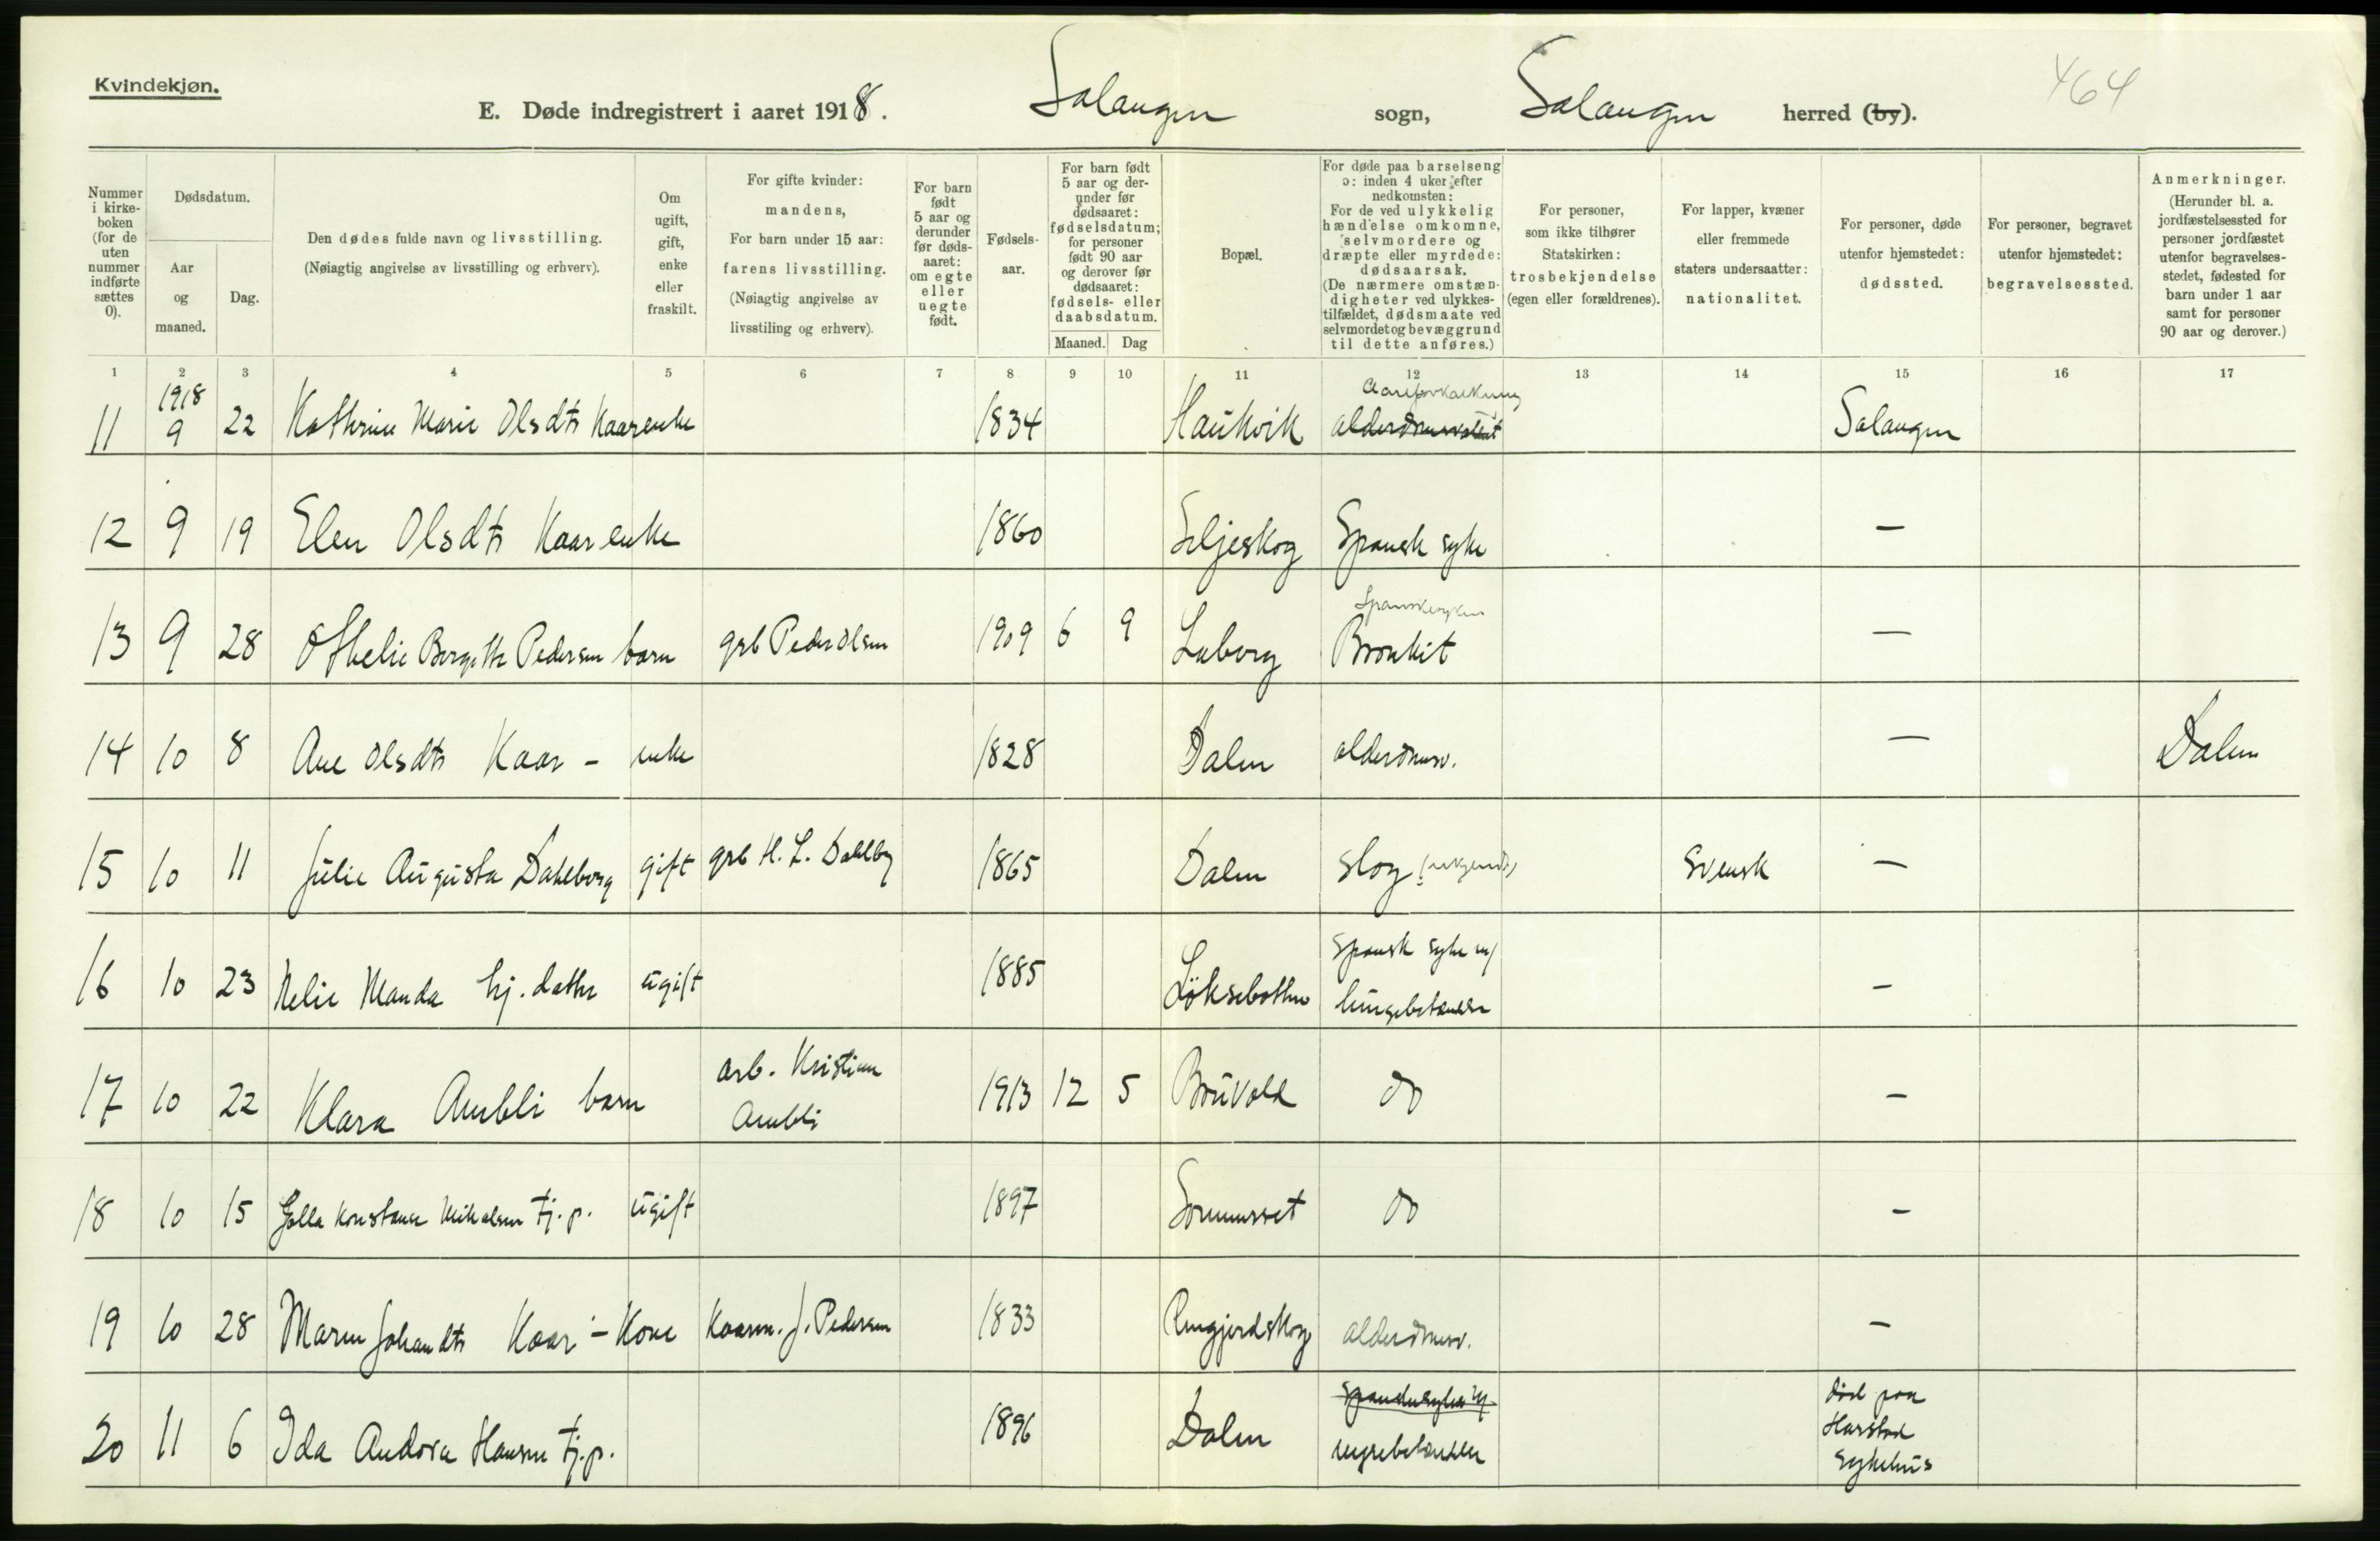 Kvindekjøn.
464
E. Døde indregistrert i aaret 1918. Salangen sogn, Salangen herred (by).
Nummer i kirke-boken (for de uten nummer indførte sættes 0).
Dødsdatum.
Aar og maaned.
Dag.
Den dødes fulde navn og livsstilling.
(Nøiagtig angivelse av livsstilling og erhverv).
Om ugift, gift, enke eller fraskilt.
For gifte kvinder: mandens,
For barn under 15 aar: farens livsstilling.
(Nøiagtig angivelse av livsstiling og erhverv).
For barn født 5 aar og derunder før døds-aaret: om egte eller uegte født.
Fødsels-aar.
For barn født 5 aar og der-under før dødsaaret: fødselsdatum; for personer født 90 aar og derover før dødsaaret: fødsels- eller daabsdatum.
Maaned. Dag
Bopæl.
For døde paa barselseng ɔ: inden 4 uker efter nedkomsten:
For de ved ulykkelig hændelse omkomne, selvmordere og dræpte eller myrdede: dødsaarsak.
(De nærmere omstæn-digheter ved ulykkes-tilfældet, dødsmaate ved selvmordet og bevæggrund til dette anføres.)
For personer, som ikke tilhører Statskirken: trosbekjendelse (egen eller forældrenes).
For lapper, kvæner eller fremmede staters undersaatter: nationalitet.
For personer, døde utenfor hjemstedet: dødssted.
For personer, begravet utenfor hjemstedet: begravelsessted.
Anmerkninger.
(Herunder bl. a. jordfæstelsessted for personer jordfæstet utenfor begravelses-stedet, fødested for barn under 1 aar samt for personer 90 aar og derover.)
1 2 3 4 5 6 7 8 9 10 11 12 13 14 15 16 17
1918
Aareforkalkning
11 9 22 Kathrine Marie Olsdtr Kaarenke 1834 Haukvik Salangen
12 9 19 Elen Olsdtr Kaarenke 1860 Seljeskog Spansk syke —
Spanskesyken
13 9 28 Othelie Bergitte Pedersen barn grb Peder Olsen 1909 6 9 Laberg Bronkit —
14 10 8 Ane Olsdtr Kaar - enke 1828 Dalen alderdomsv. — Dalen
15 10 11 Julie Augusta Dahlberg gift grb H. L. Dahlberg 1865 Dalen slag (ukjendt) Svensk —
16 10 23 Nelie Manda hj. datter ugift 1885 Løksebotten Spansk syke m/
lungebetændelse —
17 10 22 Klara Aunbli barn arb. Kristian
Aunbli 1913 12 5 Bruvold do —
18 10 15 Konstanse Mikalsen tj.p. ugift 1897 do —
19 10 28 Maren Johansdtr Kaar - Kone Kaarm. J. Pedersen 1833 alderdomsv. —
20 11 6 Ida Andora Hansen tj.p. 1896 Dalen død paa
Harstad
sykehus